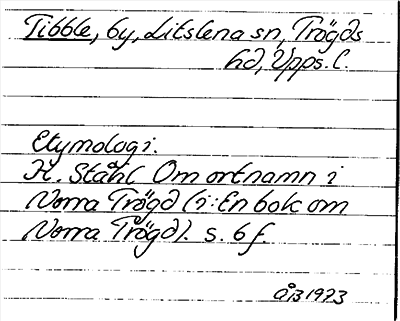 Tibble, by, Litslena sn, Trögds
hd, Upps. l.
Etymologi.
H. Ståhl Om ortnamn i
Norra Trögd (i: En bok om
Norra Trögd). s. 6 f.
ÅB 1973